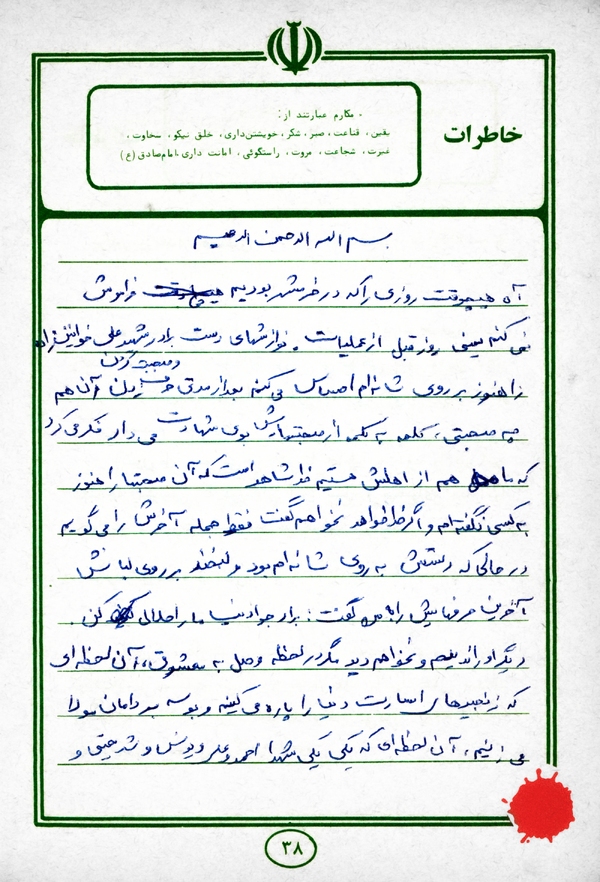 مکارم عبارتند از:
یقین، قناعت، صبر، شکر، خویشتن‌داری، خلق نیکو، سخاوت،
غیرت، شجاعت، مروت، راستگوئی، امانت داری.امام‌صادق (ع)
خاطرات
بسم الله الرحمن الرحیم
آه هیچوقت روزی را که در خرمشهر بودیم فراموش
نمی کنم یعنی روز قبل از عملیات. نوازشهای دست برادر شهید علی
و صحبت کردن
را هنوز بر روی شانه‌ام احساس می کنم بعد از مدتی آن هم
چه صحبتی، کلمه به کلمه از صحبتهایش بوی شهادت می داد فکر می کرد
که ما هم از اهلش هستیم خدا شاهد است که آن صحبتها را هنوز
به کسی نگفته‌ام و اگر خدا خواهد نخواهم گفت فقط جمله آخرش را می گویم
در حالی که دستش به روی شانه‌ام بود و لبخند بر روی لبانش
آخرین حرفهایش را به من گفت: برادر جواد ما را حلالی کن.
دیگر او را ندیدم و نخواهم دید مگر در لحظه وصل به معشوق، آن لحظه‌ای
که زنجیرهای اسارت دنیا را پاره می کنیم و بوسه بر دامان مولا
می زنیم، آن لحظه‌ای که یکی یکی شهدا احمد و
۳۸